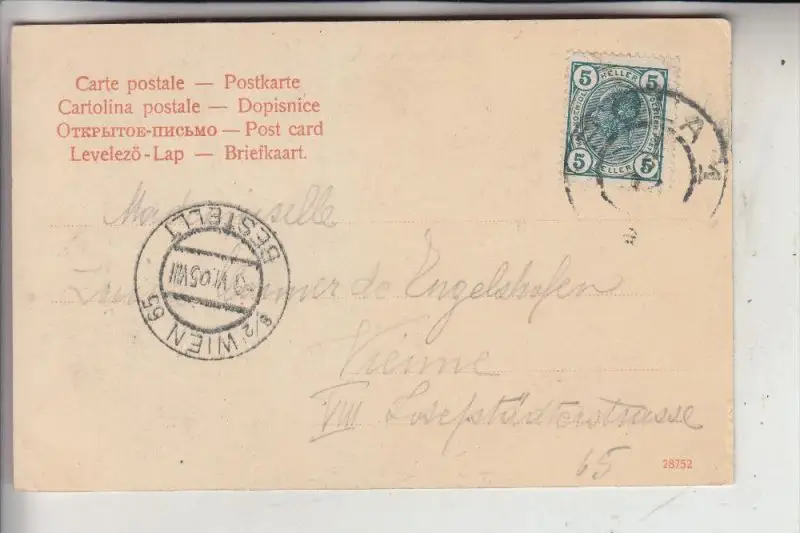 Carte postale — Postkarte
Cartolina postale — Dopisnice
Открытое-письмо — Post card
Levelező-Lap — Briefkaart.
5 HELLER 5
5 HELLER 5
Mademoiselle
de Engelshofen
Vienne
VIII Josefstädterstrasse
65
BESTELLT
VI 05 VIII
8/2 WIEN 65
28752